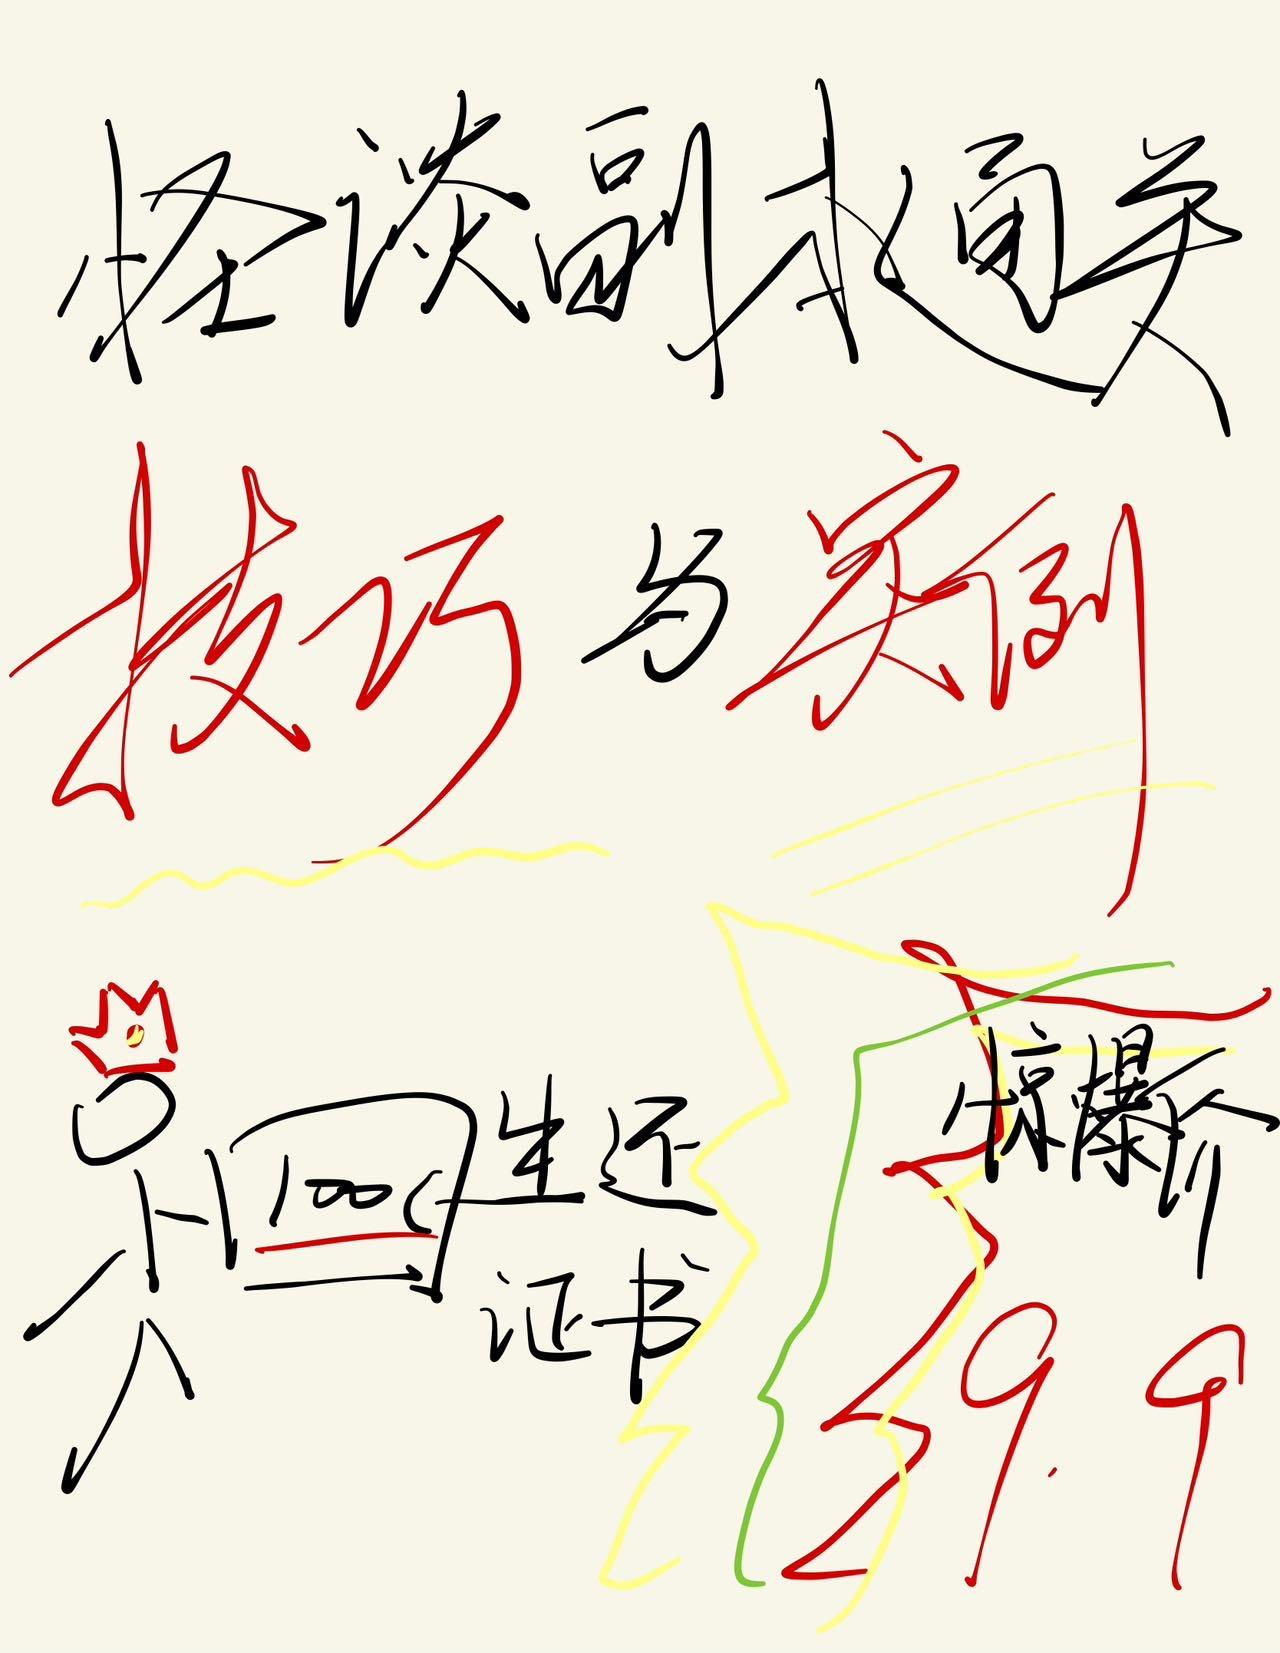 怪谈副本通关
技巧与实例
100(
生还
证书
惊爆价
9.9